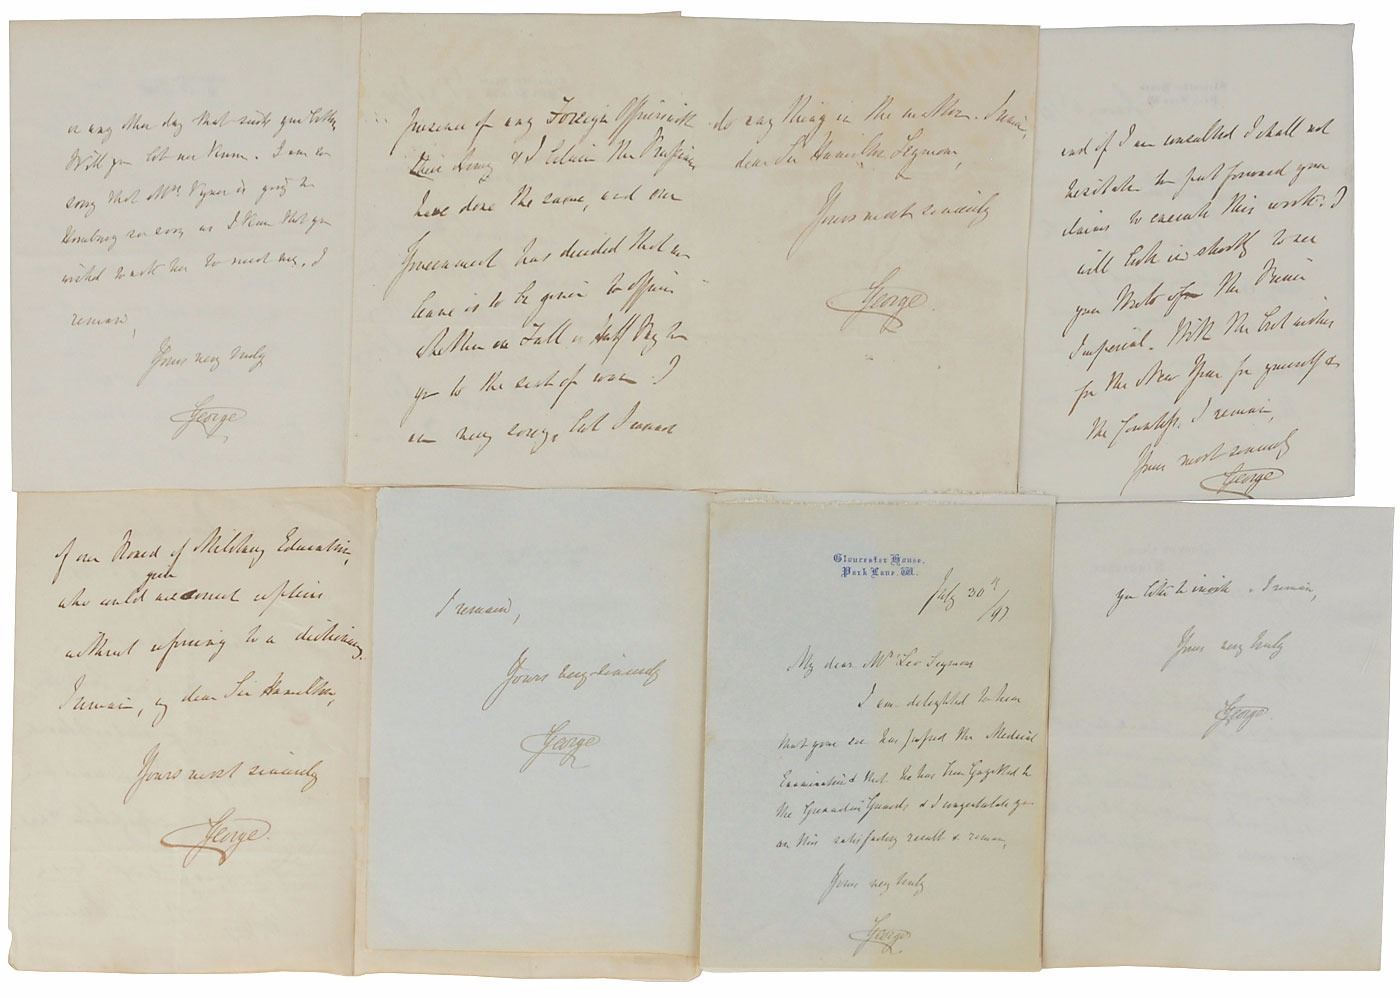 or any other day that suits you better,
Will you let me know. I am so
sorry that Mrs. Vyner is going to
Homburg so soon as I know that you
wished to ask her to meet me. I
remain,
Yours very truly
George
presence of any Foreign Officers with
their Army & I believe the Prussians
have done the same, and our
Government has decided that no
leave is to be given to officers
whether on Full or Half Pay to
go to the seat of war. I
am very sorry, but I cannot
do any thing in the matter. I remain,
dear Sir Hamilton Seymour,
Yours most sincerely
George
and if I am consulted I shall not
hesitate to put forward your
claims to execute this work. I
will look in shortly to see
your Photo of the Prince
Imperial. With the best wishes
for the New Year for yourself &
the Countess, I remain,
Yours most sincerely
George
of our Board of Military Education,
who could give correct replies
without referring to a dictionary.
I remain, my dear Sir Hamilton,
Yours most sincerely
George
I remain,
Yours very sincerely
George
Gloucester House,
Park Lane. W.
July 30th
/97
My dear Mrs Leo Seymour
I am delighted to hear
that your son has passed the Medical
Examination & that he has been Gazetted to
the Grenadier Guards, & I congratulate you
on this satisfactory result & remain,
Yours very truly
George
you like to invite. I remain,
Yours very truly
George